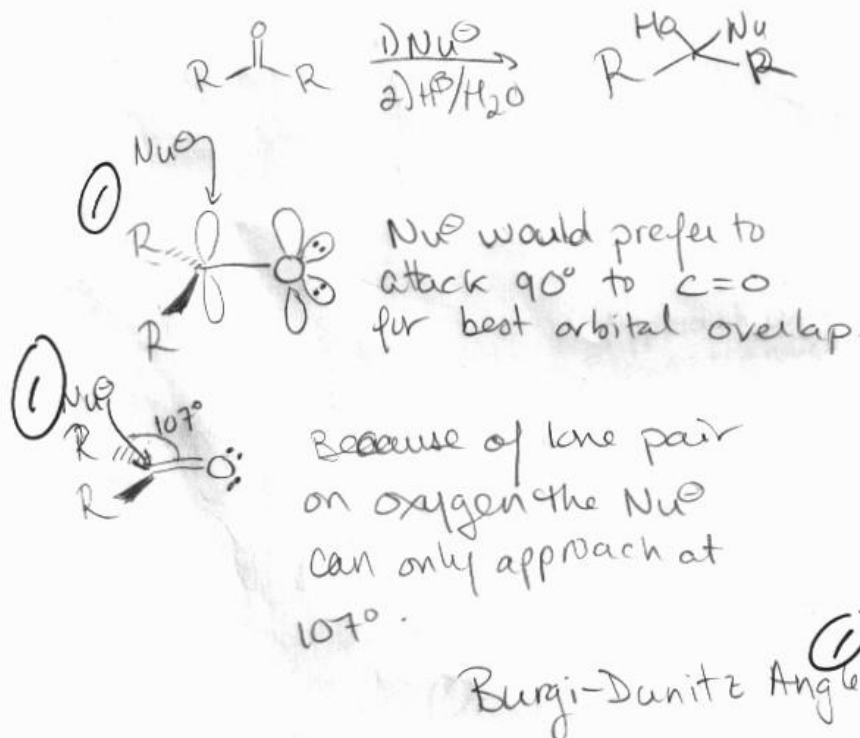 O
R R
1) Nu⊖
2) H⊕/H2O
HO Nu
R R
Nu⊖
1
R
R
O
Nu⊖ would prefer to
attack 90° to C=O
for best orbital overlap.
1
Nu⊖
107°
R
R
O
Because of lone pair
on oxygen the Nu⊖
can only approach at
107°.
1
Burgi-Dunitz Angle